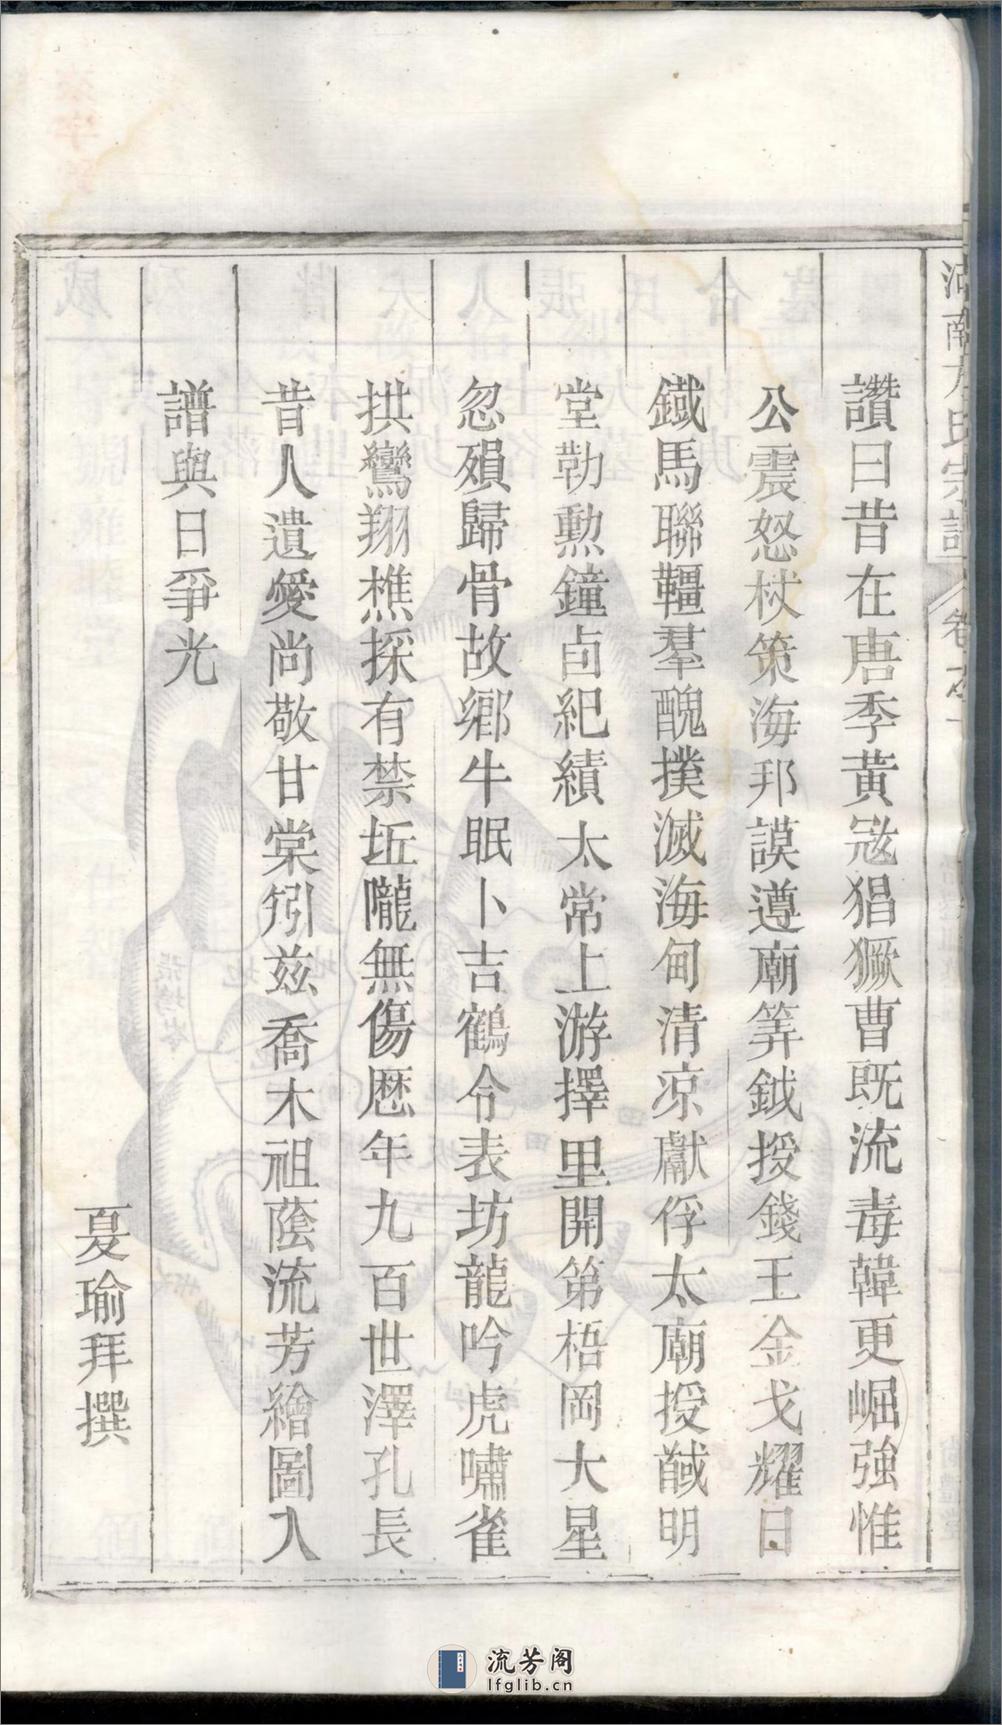 讚曰昔在唐季黃寇猖獗曹既流毒韓更崛強惟
公震怒杖策海邦謨遵廟筭鉞授錢王金戈耀日
鐵馬聯韁羣醜撲滅海甸清涼獻俘太廟授馘明
堂勒勲鐘卣紀績太常上游擇里開第梧岡大星
忽殞歸骨故鄉牛眠卜吉鶴令表坊龍吟虎嘯雀
拱鸞翔樵採有禁坵隴無傷歷年九百世澤孔長
昔人遺愛尚敬甘棠矧茲喬木祖蔭流芳繪圖入
譜與日爭光
夏瑜拜撰
流芳阁
lfglib.cn